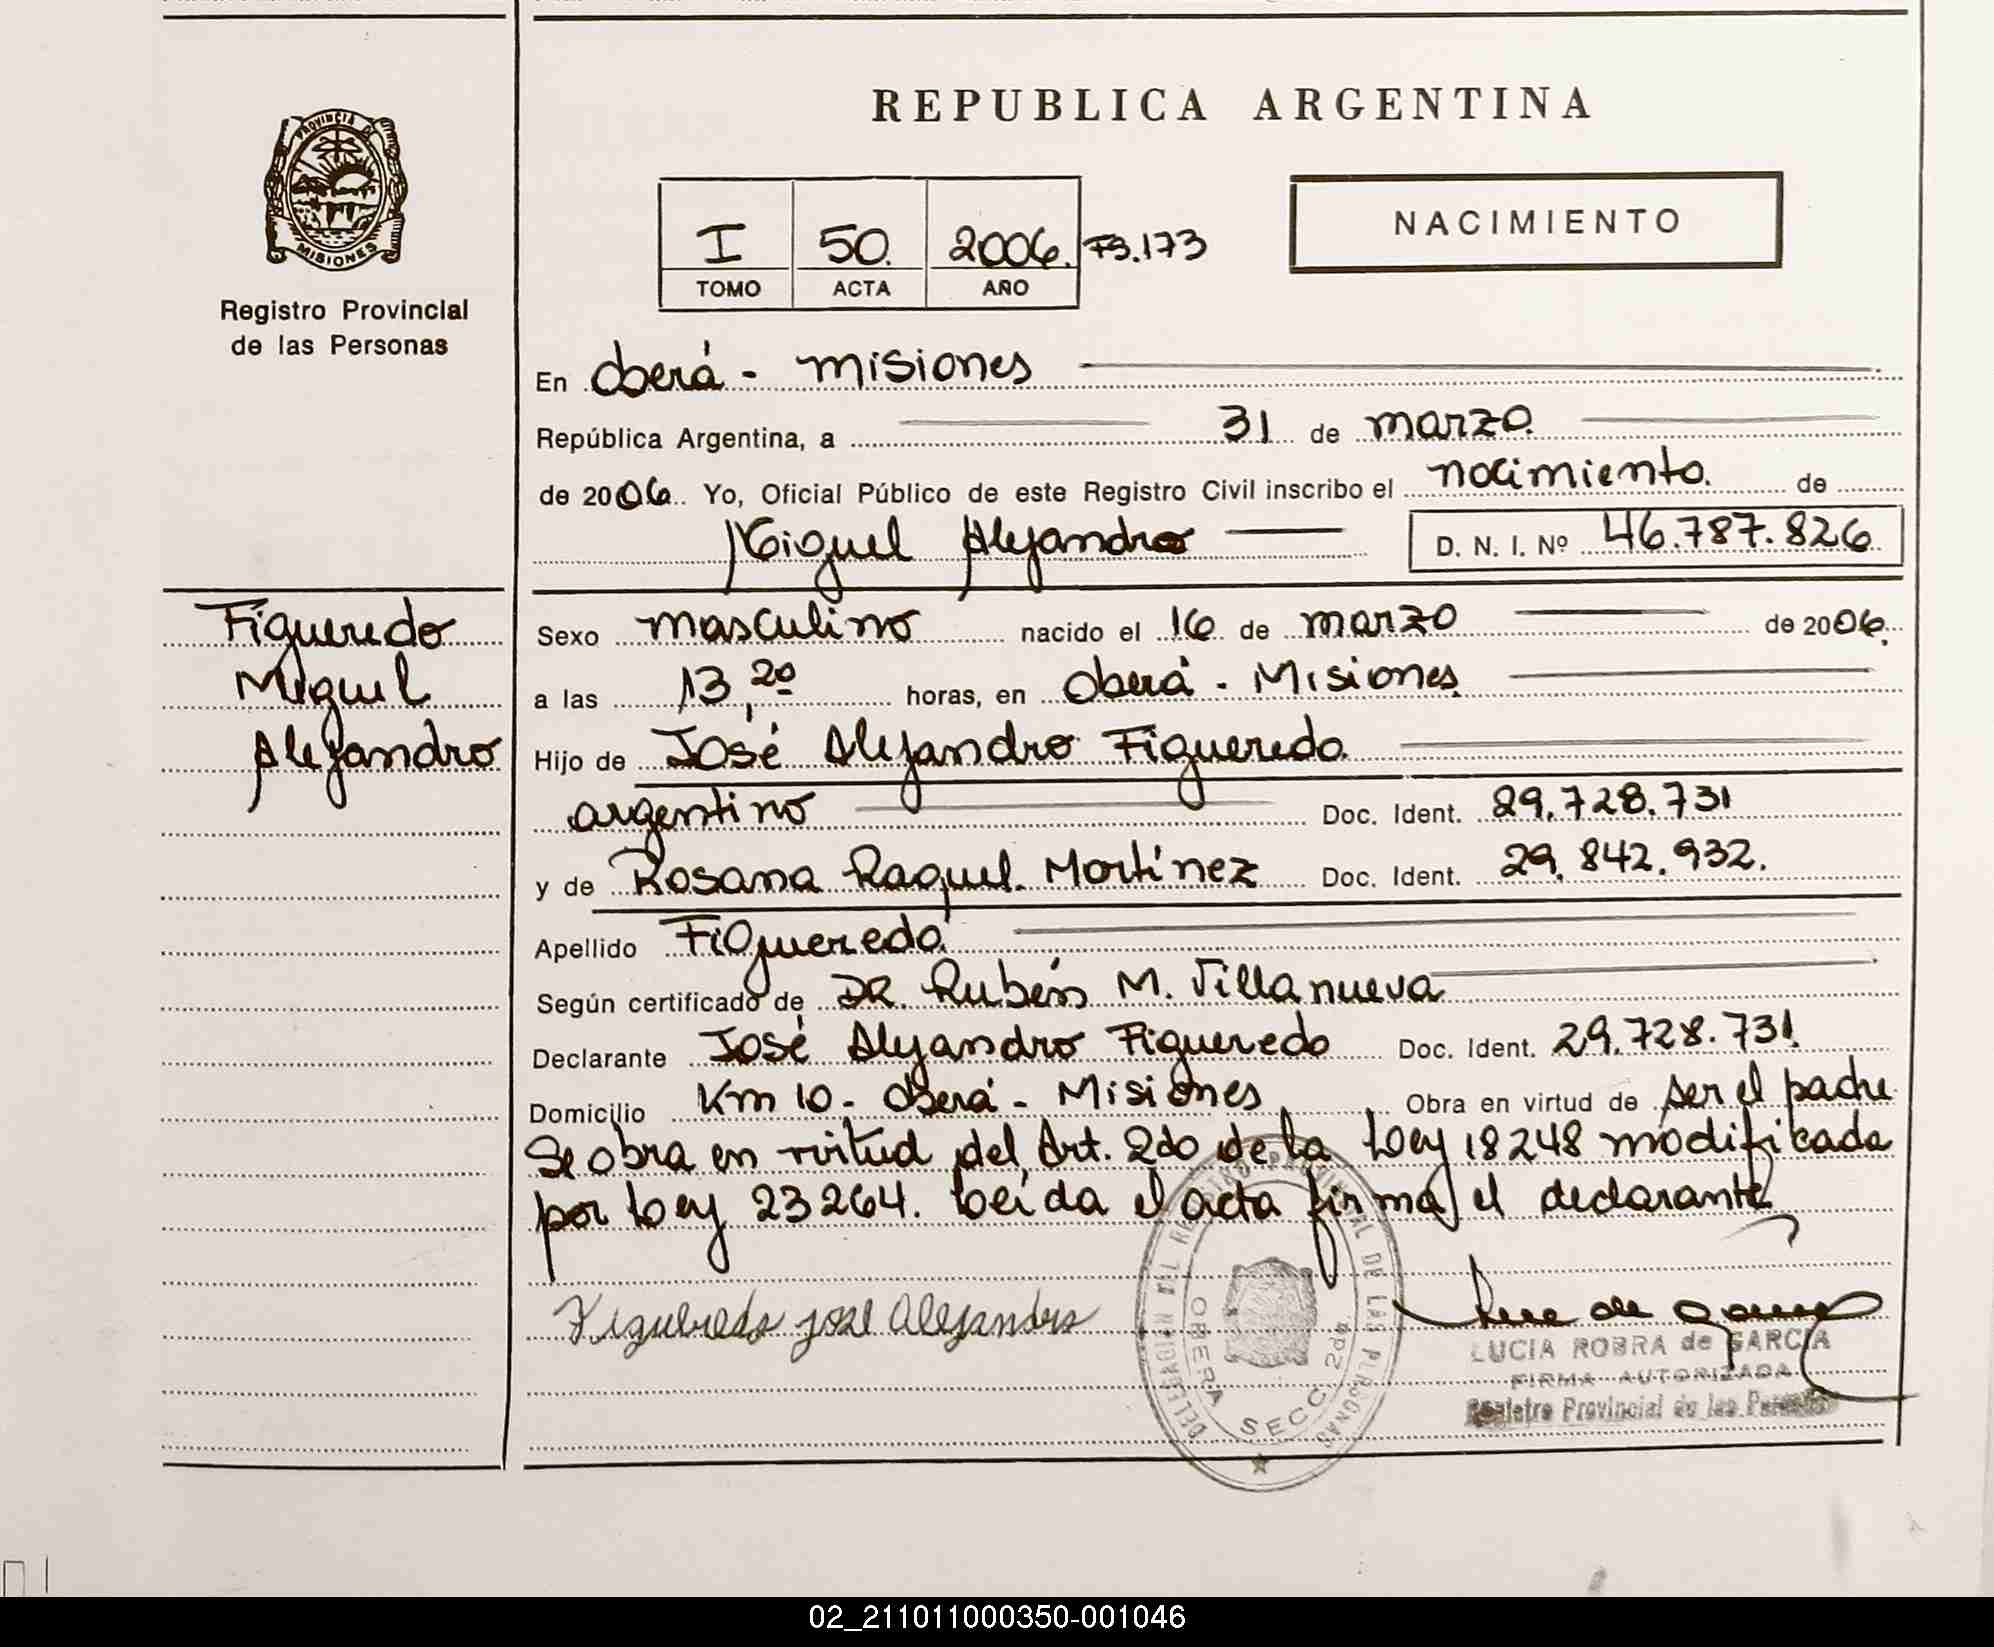 REPUBLICA ARGENTINA
PROVINCIA DE
MISIONES
Registro Provincial
de las Personas
I 50. 2006. F3.173
TOMO ACTA AÑO
NACIMIENTO
En Oberá - Misiones
República Argentina, a 31 de marzo.
de 2006. Yo, Oficial Público de este Registro Civil inscribo el nacimiento. de
Miguel Alejandro D. N. I. Nº 46.787.826
Figueredo
Miguel
Alejandro
Sexo masculino nacido el 16 de marzo de 2006.
a las 13,20 horas, en Oberá - Misiones
Hijo de José Alejandro Figueredo
argentino Doc. Ident. 29.728.731
y de Rosana Raquel Martínez Doc. Ident. 29.842.932.
Apellido Figueredo
Según certificado de DR. Rubén M. Villanueva
Declarante José Alejandro Figueredo Doc. Ident. 29.728.731
Domicilio Km 10 - Oberá - Misiones Obra en virtud de ser el padre
Se obra en rvitud del Art. 2do de la Ley 18248 modificada
por Ley 23264. Leída el acta firma el declarante
Figueredo jose Alejandro
DELEGACION DEL REGISTRO PROVINCIAL DE LAS PERSONAS
OBERA SECC 2da
LUCIA ROBRA de GARCIA
FIRMA AUTORIZADA
Registro Provincial de las Personas
02_211011000350-001046